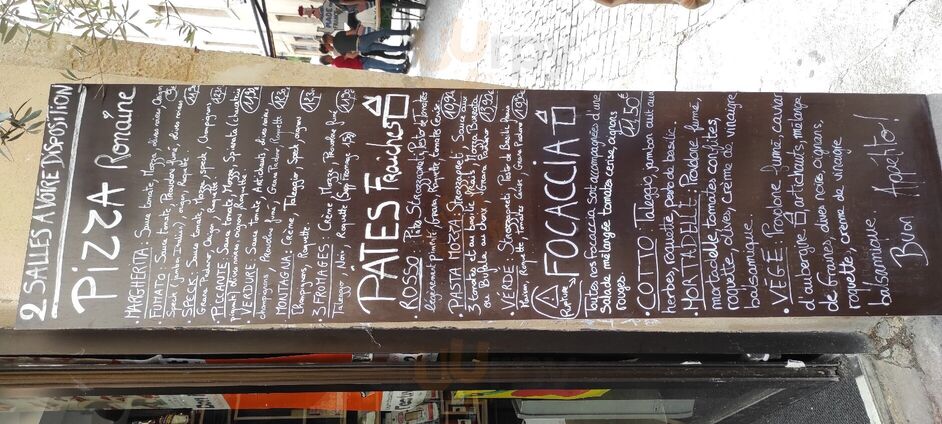 2 SALLES A VOTRE DISPOSITION
PIZZA Romaine
• MARGHERITA : Sauce tomate, Mozza, olives noires, Origan
• FUMATO : Sauce tomate, Provolone fumé, olives noires
Speck (Jambon Italien), origan, Roquette
• SPECK : Sauce tomate, Mozza, speck, Champignons,
Grana Padano, Origan, Roquette
• PICCANTE : Sauce tomate, Mozza, Spianata (Chorizo
piquant) olives noires, origan, Roquette
• VERDURE : Sauce tomate, Artichauts, olives noires,
champignons, Provolone fumé, Grana Padano, Roquette
• MONTAGNA : Crème, Taleggio, Speck, oignons
Champignons, Roquette
• 3 FROMAGES : Crème, Mozza, Provolone fumé
Taleggio, Noix, Roquette
PÂTES FRAICHES
• ROSSO : Pâte, Strozzapreti, Pesto de tomates
légèrement pimenté, Parmesan, Roquette, Tomate Cerise
• PASTA MOZZA : Strozzapreti, Sauce aux
3 tomates et au basilic frais, Mozza Burrata
ou Bufala au choix, Grana Padano
• VERDE : Strozzapreti, Pesto de Basilic,
Roquette, Tomates Cerise, Grana Padano
FOCACCIA
11.50€
Toutes nos focaccia sont accompagnées d'une
salade mélangée tomates cerise, oignons
rouges.
• COTTO : Taleggio, jambon cuit aux
herbes, roquette, pesto de basilic.
• MORTADELLE : Provolone fumé,
mortadelle, tomates confites,
roquette, olives, crème de vinaigre
balsamique.
• VÉGÉ : Provolone fumé, caviar
d'aubergine, artichauts, mélange
de graines, olives noires, oignons,
roquette, crème de vinaigre
balsamique.
Buon Appetito!